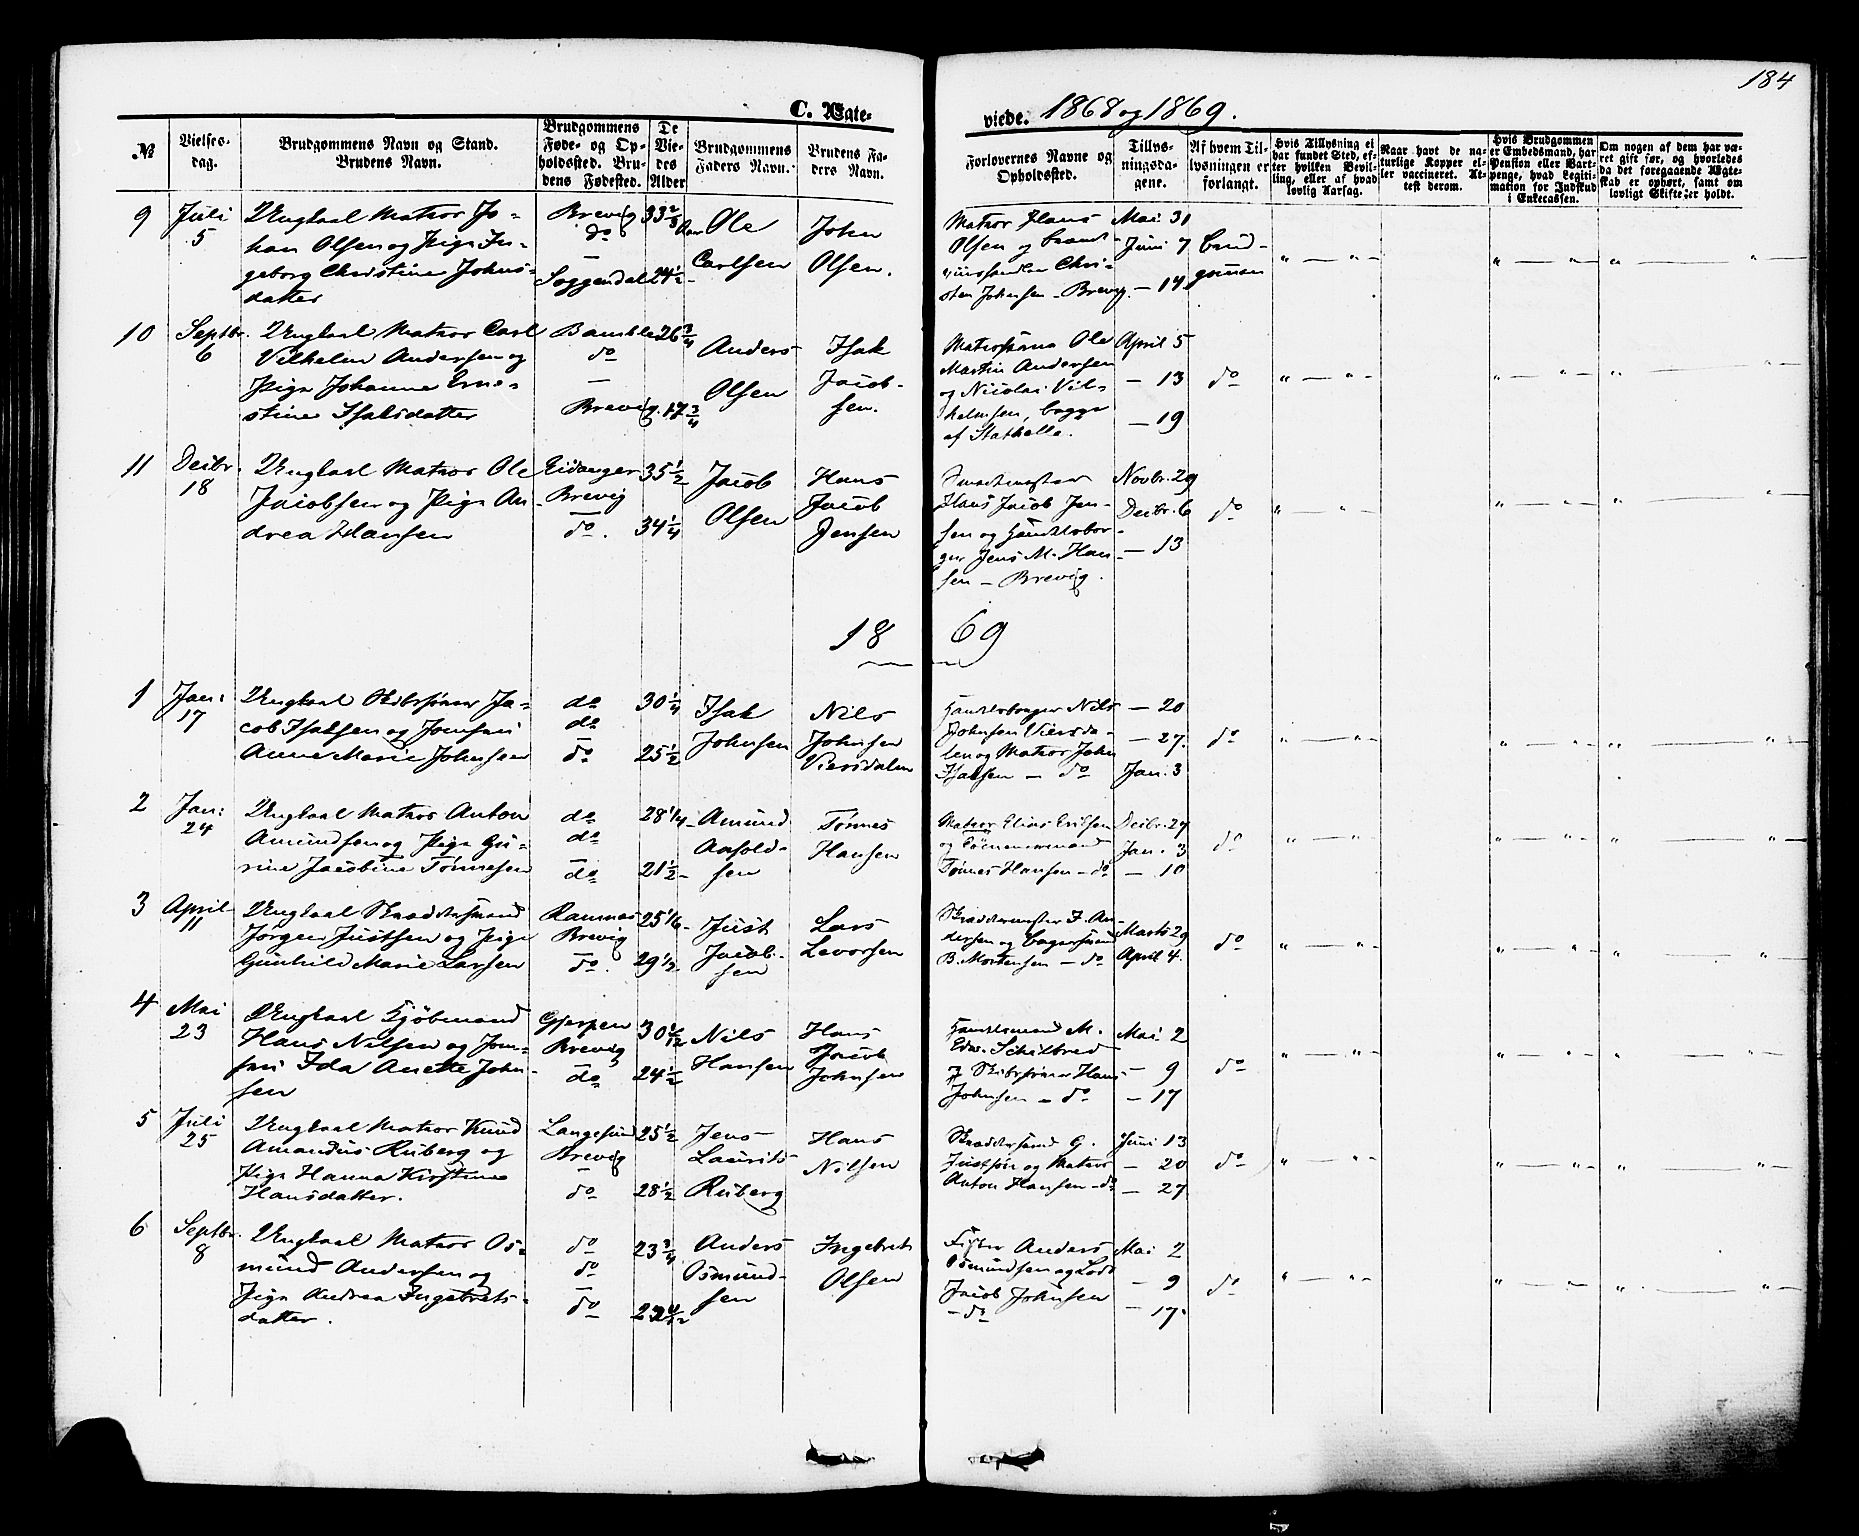 184
C. Ægteviede. 1868 og 1869.
№
Vielsesdag.
Brudgommens Navn og Stand. Brudens Navn.
Brudgommens Føde- og Opholdssted. Brudens Fødested.
De Viedes Alder
Brudgommens Faders Navn.
Brudens Faders Navn.
Forlovernes Navne og Opholdssted.
Tillysningsdagene.
Af hvem Tillysningen er forlangt.
Hvis Tillysning ei har fundet Sted, efter hvilken Bevilling, eller af hvad lovlig Aarsag.
Naar havt de naturlige Kopper eller vaccineret. Attest derom.
Hvis Brudgommen er Embedsmand, har Pension eller Vartpenge, hvad Legitimation for Indskud i Enkecassen.
Om nogen af dem har været gift før, og hvorledes da det foregaaende Ægteskab er ophørt, samt om lovligt Skifte er holdt.
9 Juli 5
Ungkarl Matros Jo-
han Olsen og Pige In-
geborg Christine Johns-
datter
Brevig
do
Soggendal
33 2/3
24 1/2
Ole
Carlsen
John
Olsen.
Matros Hans
Olsen og
Chri-
sten Johnsen - Brevig.
Mai 31
Juni 7
— 14
Brud-
gommen
10 Septbr. 6
Ungkarl Matros Carl
Vilhelm Andersen og
Pige Johanne Erne-
stine Isaksdatter
Bamble
do
Brevig.
26 3/4
17 3/4
Anders
Olsen
Isak
Jacob-
sen.
Matroserne Ole
Martin Andersen
og Nicolai Vil-
helmsen, begge
af Stathelle.
April 5
— 13
— 19
do
11 Decbr. 18
Ungkarl Matros Ole
Jacobsen og Pige An-
drea Hansen
Eidanger
Brevig
do.
35 1/2
34 1/4
Jacob
Olsen
Hans
Jacob
Jensen
Hans Jacob Jen-
sen og Handelsbor-
ger Jens M. Han-
sen - Brevig.
Novbr. 29
Decbr. 6
— 13
do
1869
1 Jan: 17
Ungkarl Skibsfører Ja-
cob Isaksen og Jomfru
Anne Marie Johnsen
do
do
do
30 1/4
25 1/2
Isak
Johnsen
Nils
Johnsen
Viersdalen
Handelsborger Nils
Johnsen Viersda-
len og Matros John
Isaksen - do
— 20
— 27.
Jan. 3
do
2 Jan: 24
Ungkarl Matros Anton
Amundsen og Pige Gu-
rine Jacobine Tønnesen
do
do
do
28 1/4
21 1/2
Amund
Aasold-
sen
Tønnes
Hansen
Matros Elias Eriksen
og
Tønnes Hansen - do
Decbr. 27
Jan. 3
— 10
do
3 April 11
Ungkarl Skræddersvend
Jørgen Justsen og Pige
Gunhild Marie Larsen
Ramnes
Brevig
do.
25 1/6
29 1/2
Just
Jacob-
sen
Lars
Levorsen
Skræddermester F. An-
dersen og Bagersvend
B. Mortensen - do
Marts 29
April 4.
do
4 Mai 23
Ungkarl Kjøbmand
Hans Nilsen og Jom-
fru Ida Anette John-
sen
Gjerpen
Brevig
do
30
24 1/2
Nils
Hansen
Hans
Jacob
Johnsen
Handelsmand M.
Edw. Schilbred
og Skibsfører Hans
Johnsen - do
Mai 2
— 9
— 17
do
5 Juli 25
Ungkarl Matros Knud
Amandus Ruberg og
Pige Hanna Kirstine
Hansdatter.
Langesund
Brevig
do
25 1/2
28 1/2
Jens
Laurits
Ruberg
Hans
Nilsen
Skræddersvend G.
Justsen og Matros
Anton Hansen - do
Juni 13
— 20
— 27
do
6 Septbr. 8
Ungkarl Matros Os-
mund Andersen og
Pige Andrea Ingebrets-
datter.
do
do
do
23 3/4
Anders
Osmund-
sen
Ingebret
Olsen
Fisker Anders
Osmundsen og Lods
Jacob Johnsen
- do
Mai 2
— 9
— 17.
do